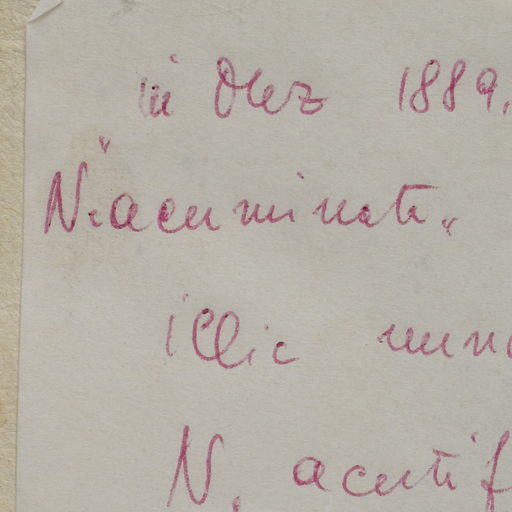 in Dez 1889.
N. "acuminata"
illic nunc
N. acutif